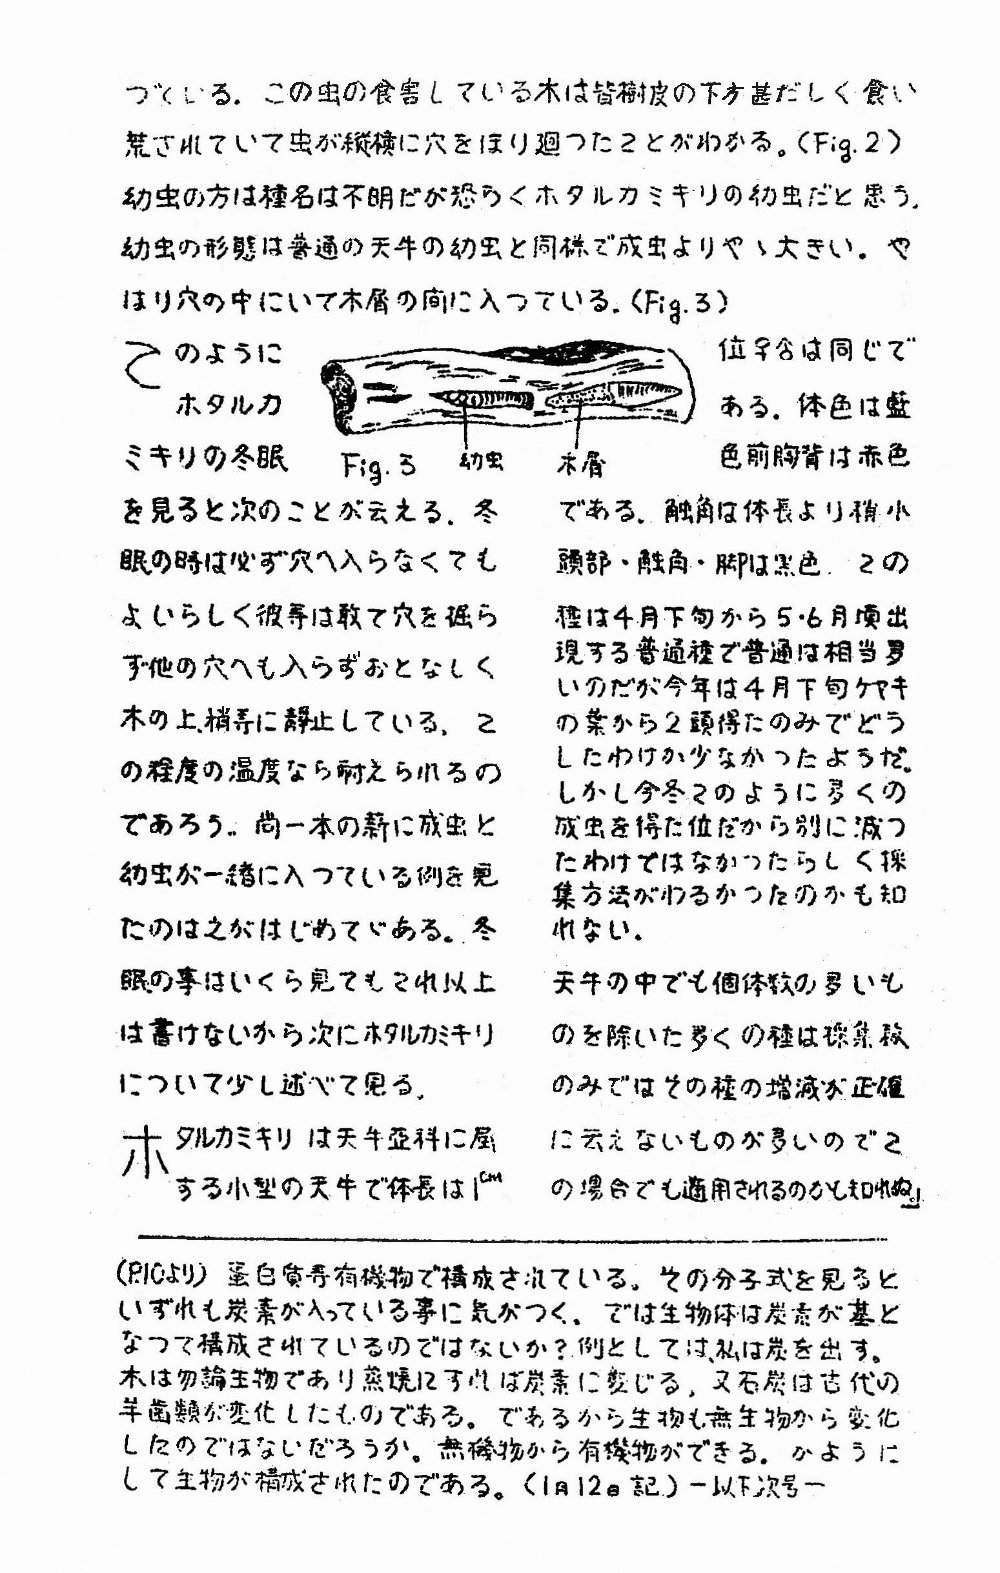 つている。この虫の食害している木は皆樹皮の下方甚だしく食い
荒されていて虫が縦横に穴をほり廻つたことがわかる。(Fig.2)
幼虫の方は種名は不明だが恐らくホタルカミキリの幼虫だと思う。
幼虫の形態は普通の天牛の幼虫と同様で成虫よりやゝ大きい。や
はり穴の中にいて木屑の間に入つている。(Fig.3)
このように
ホタルカ
ミキリの冬眠
Fig.3 幼虫 木屑
を見ると次のことが云える。冬
眠の時は必ず穴へ入らなくても
よいらしく彼等は敢て穴を掘ら
ず他の穴へも入らずおとなしく
木の上、梢等に静止している。こ
の程度の温度なら耐えられるの
であろう。尚一本の薪に成虫と
幼虫が一緒に入つている例を見
たのは之がはじめてである。冬
眠の事はいくら見てもこれ以上
は書けないから次にホタルカミキリ
について少し述べて見る。
ホタルカミキリは天牛亜科に属
する小型の天牛で体長は1cm
位、雌雄は同じで
ある。体色は藍
色前胸背は赤色
である。触角は体長より稍小
頭部・触角・脚は黒色。この
種は4月下旬から5・6月頃出
現する普通種で普通は相当多
いのだが今年は4月下旬ケヤキ
の葉から2頭得たのみでどう
したわけか少なかつたようだ。
しかし今冬このように多くの
成虫を得た位だから別に減つ
たわけではなかつたらしく採
集方法がわるかつたのかも知
れない。
天牛の中でも個体数の多いも
のを除いた多くの種は採集数
のみではその種の増減が正確
に云えないものが多いのでこ
の場合でも適用されるのかも知れぬ。」
(P.10より)蛋白質等有機物で構成されている。その分子式を見ると
いずれも炭素が入っている事に気がつく。では生物体は炭素が基と
なつて構成されているのではないか?例としては、私は炭を出す。
木は勿論生物であり蒸焼にすれば炭素に変じる。又石炭は古代の
羊歯類が変化したものである。であるから生物も無生物から変化
したのではないだろうか。無機物から有機物ができる。かように
して生物が構成されたのである。(1月12日記)―以下次号―